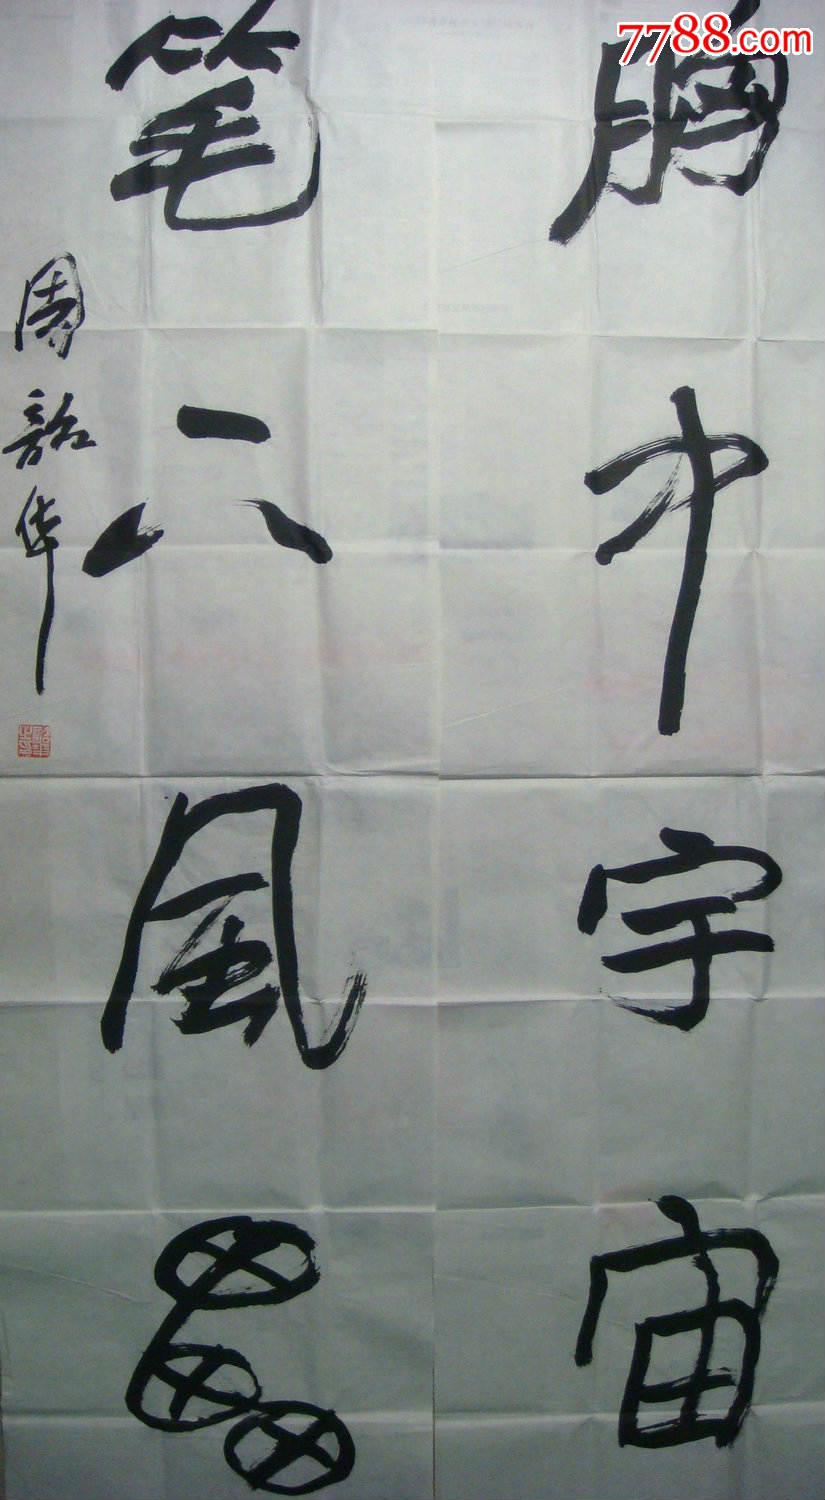 7788.com
胸中宇宙
笔下風雷
周韶华